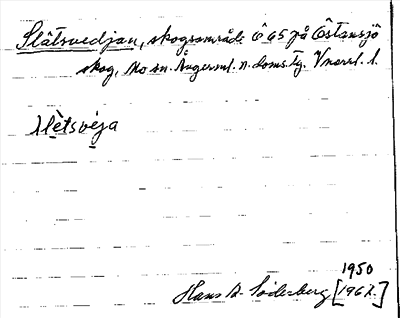 Slåtsvedjan, skogsområde Ö 65 på Östansjö
skog, Mo sn. Ångerml. n. doms. tg. Vnorrl. l.
slètsvéja
1950
Hans B. Söderberg [1967.]